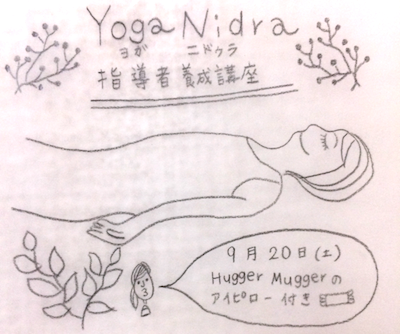 Yoga Nidra
ヨガ ニドゥラ
指導者養成講座
9月20日(土)
Hugger Muggerの
アイピロー付き